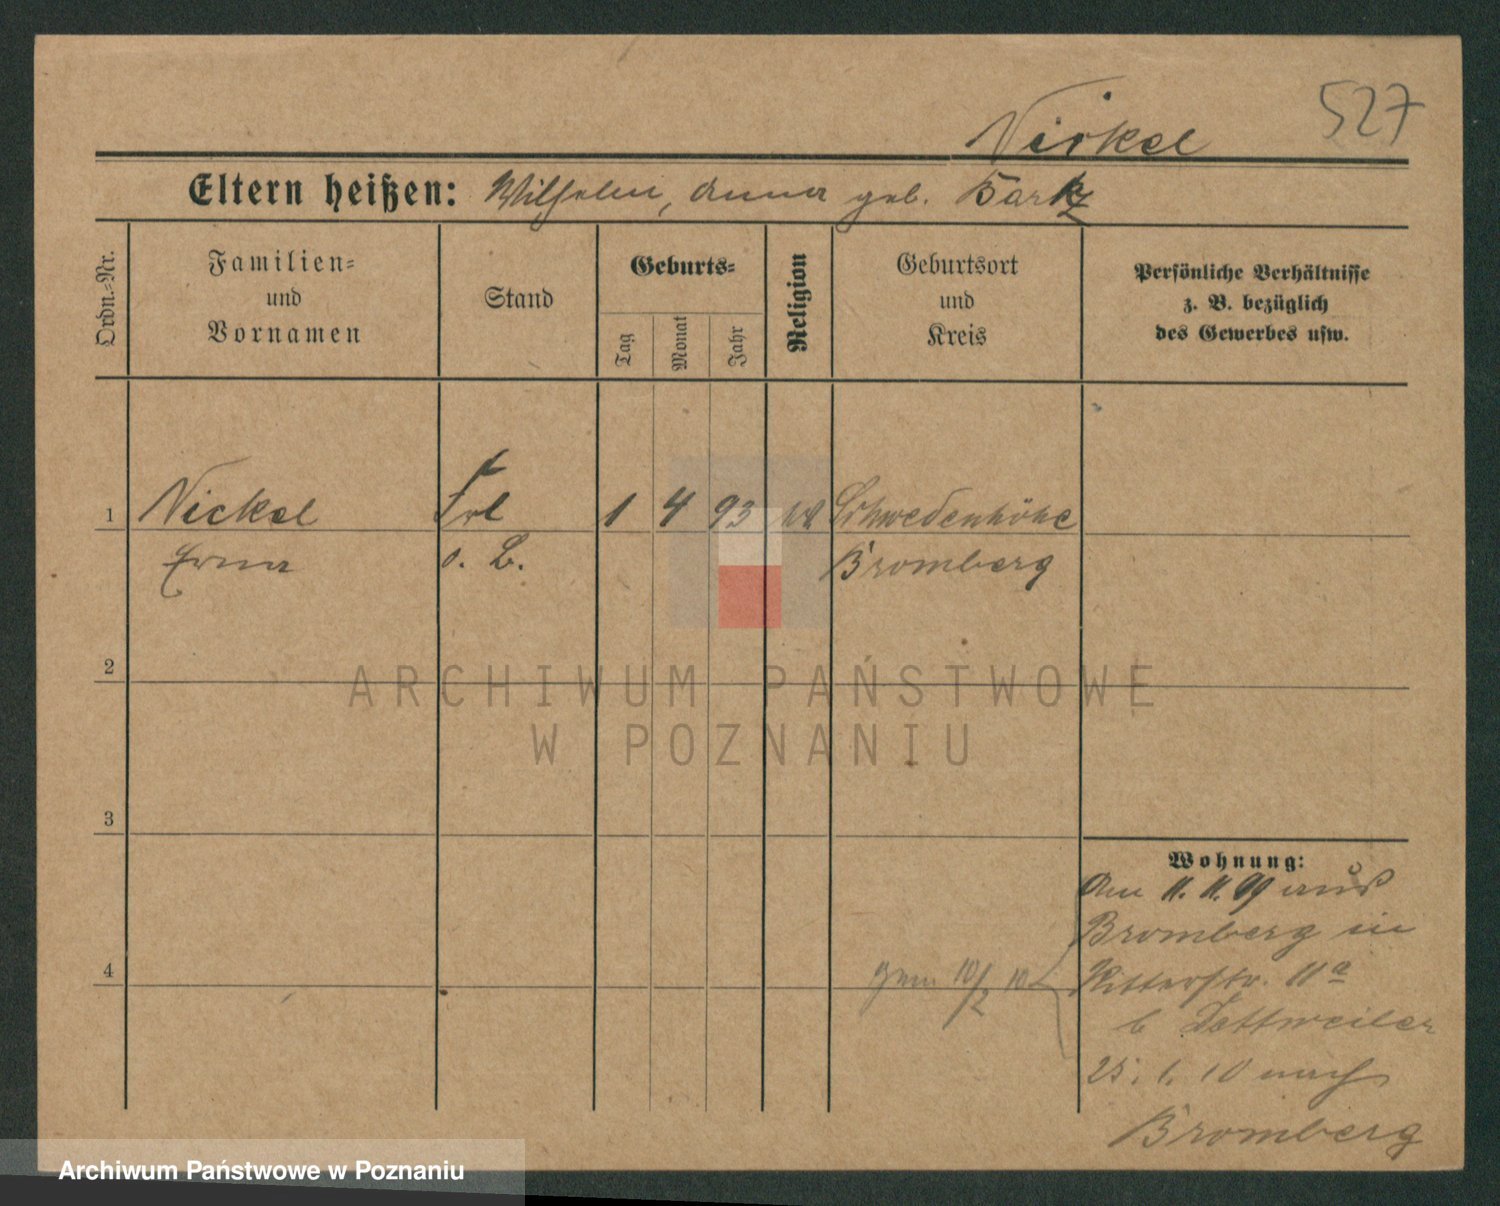 527
Nickel
Eltern heißen: Wilhelm, Anna geb. Bartz
Ordn.-Nr.
Familien-
und
Vornamen
Stand
Geburts-
Tag
Monat
Jahr
Religion
Geburtsort
und
Kreis
Persönliche Verhältnisse
z. B. bezüglich
des Gewerbes usw.
1 Nickel Frl 1 4 93 Schwedenhöhe
Erna o. B. Bromberg
2
ARCHIWUM PAŃSTWOWE
W POZNANIU
3
Wohnung:
Am 11. 11. 09 aus
Bromberg in
4 gem 10/2 10 Ritterstr. 11a
b Dettweiler
25. 1. 10 nach
Bromberg
Archiwum Państwowe w Poznaniu